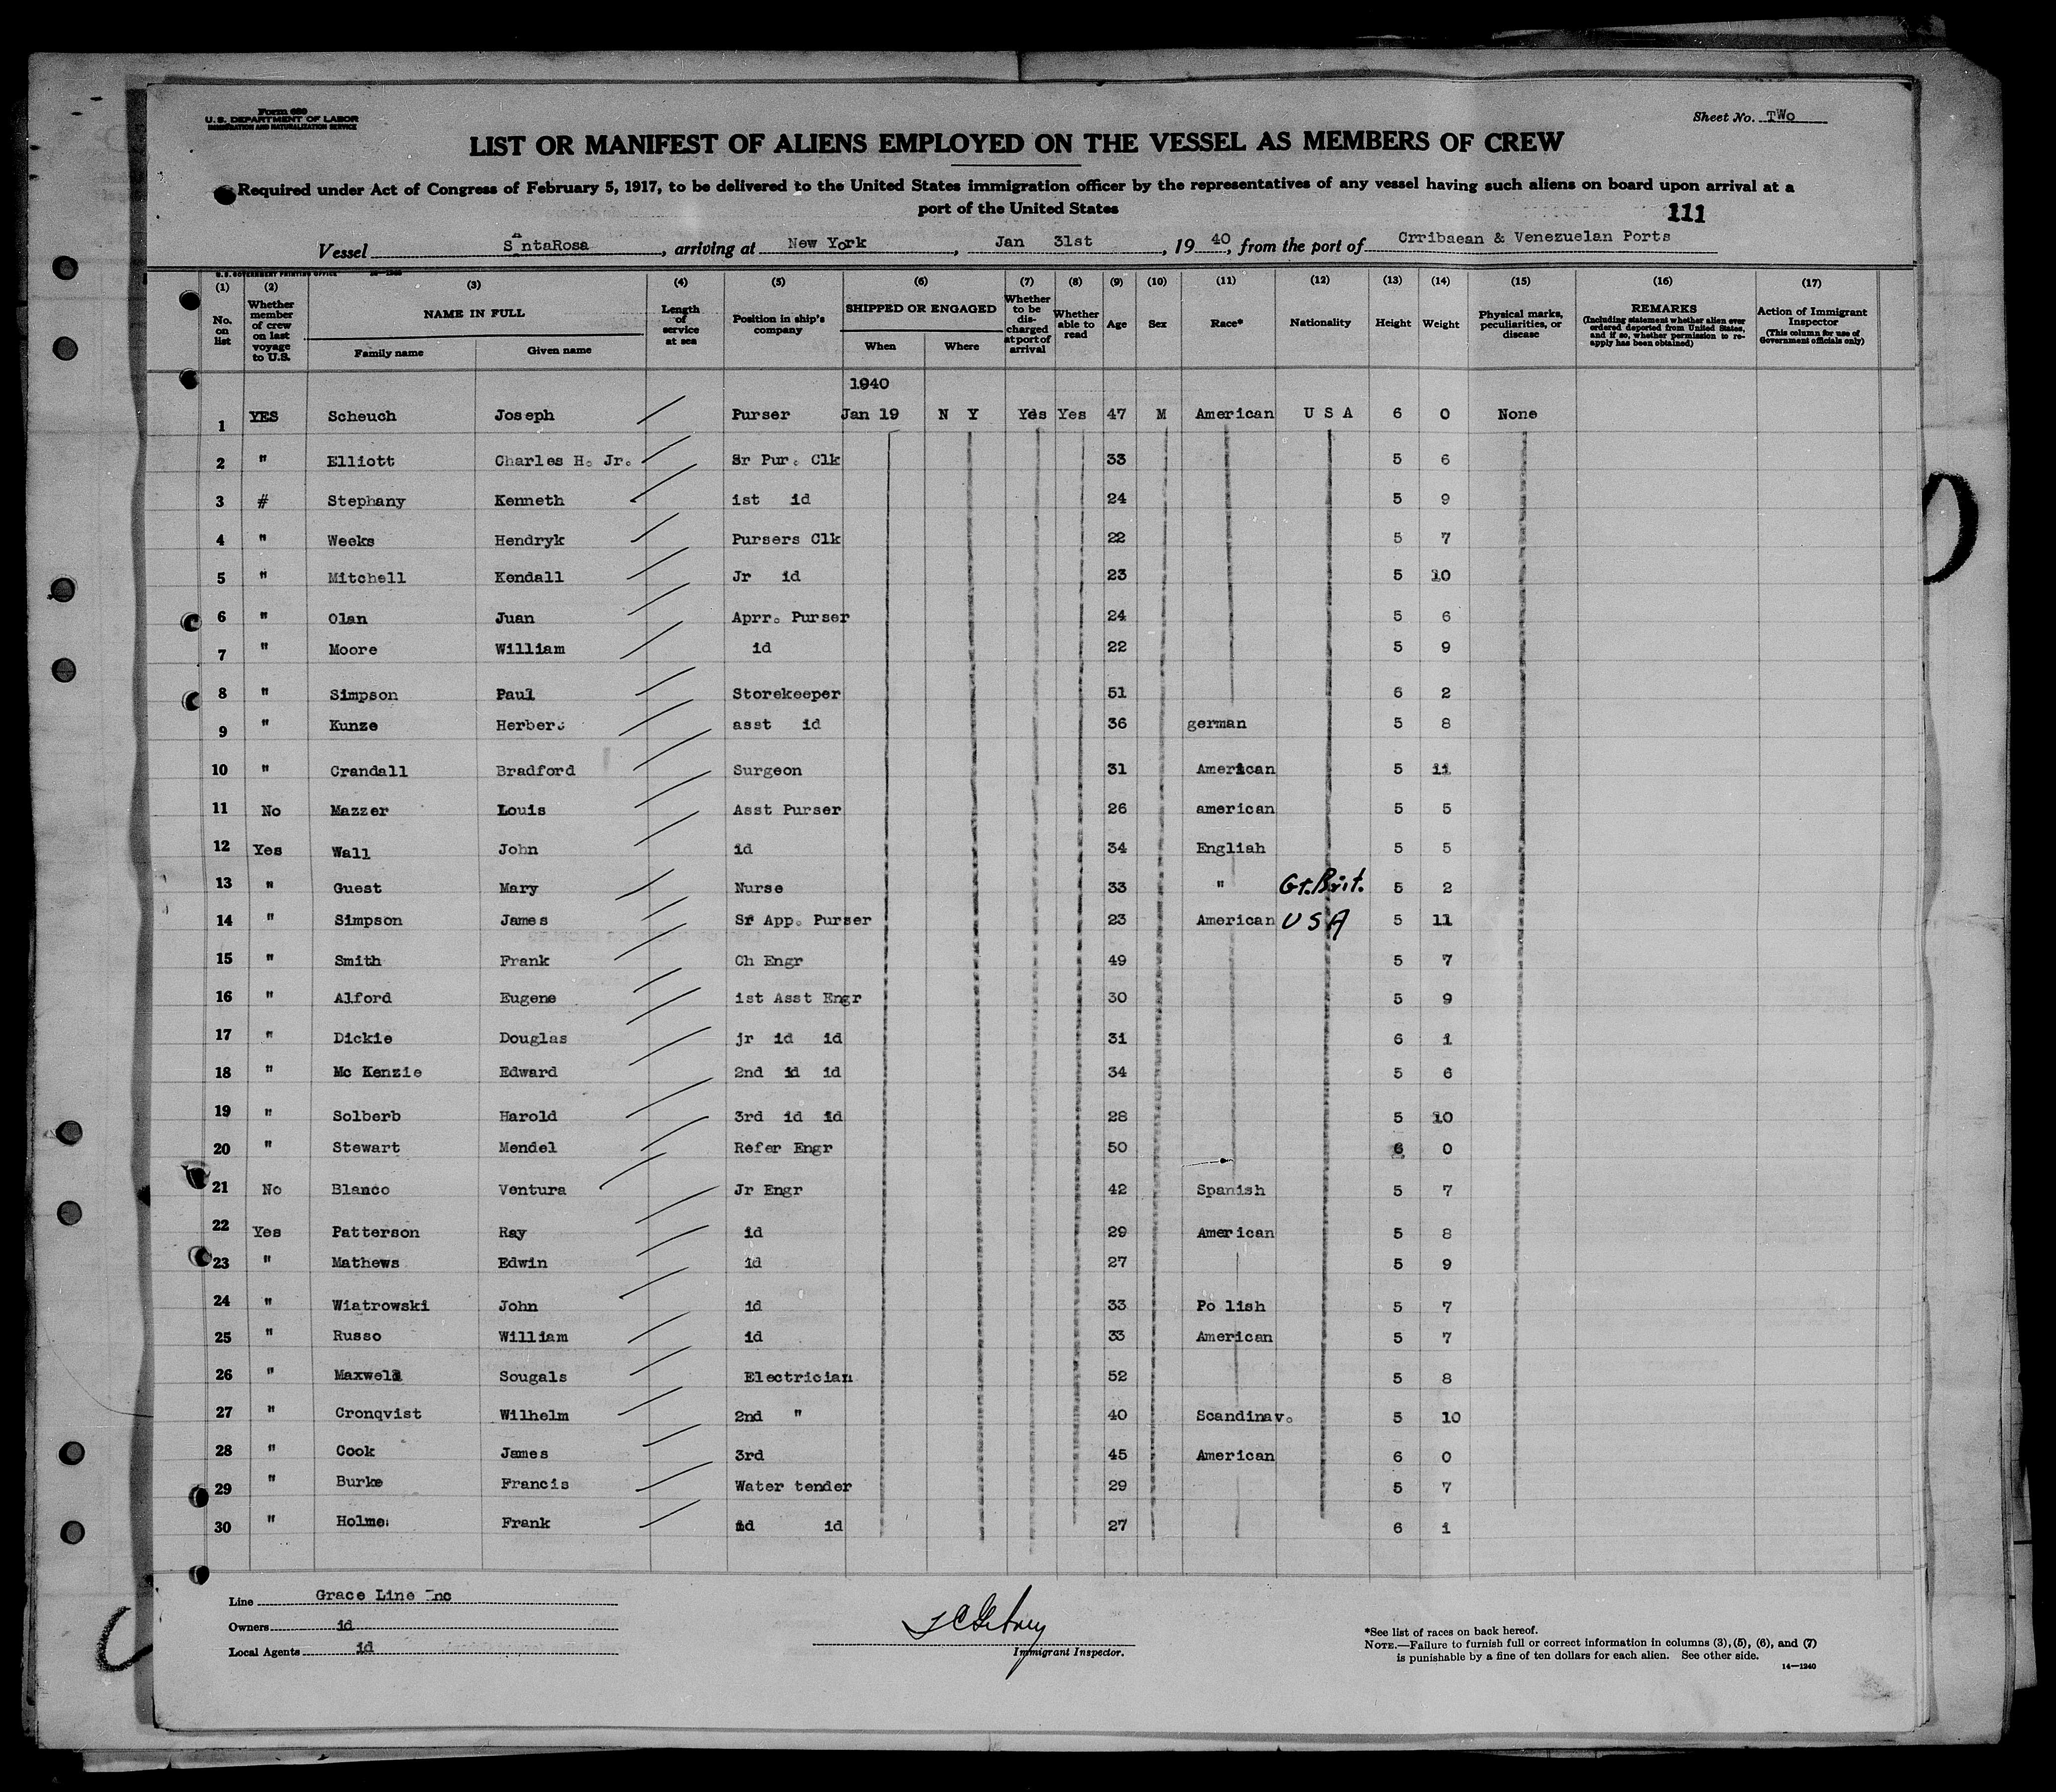 Form 680
U.S. DEPARTMENT OF LABOR
IMMIGRATION AND NATURALIZATION SERVICE
Sheet No. TWo
LIST OR MANIFEST OF ALIENS EMPLOYED ON THE VESSEL AS MEMBERS OF CREW
Required under Act of Congress of February 5, 1917, to be delivered to the United States immigration officer by the representatives of any vessel having such aliens on board upon arrival at a
port of the United States
111
Vessel SantaRosa, arriving at New York, Jan 31st, 19 40, from the port of Crribaean & Venezuelan Ports
U.S. GOVERNMENT PRINTING OFFICE
(1) No. on list
(2) Whether member of crew on last voyage to U.S.
(3) NAME IN FULL Family name Given name
(4) Length of service at sea
(5) Position in ship's company
(6) SHIPPED OR ENGAGED When Where
(7) Whether to be discharged at port of arrival
(8) Whether able to read
(9) Age
(10) Sex
(11) Race*
(12) Nationality
(13) Height
(14) Weight
(15) Physical marks, peculiarities, or disease
(16) REMARKS (Including statement whether alien ever ordered deported from United States, and if so, whether permission to re-apply has been obtained)
(17) Action of Immigrant Inspector (This column for use of Government officials only)
1940
1 YES Scheuch Joseph Purser Jan 19 N Y Yes Yes 47 M American U S A 6 0 None
2 " Elliott Charles H. Jr. Sr Pur. Clk 33 5 6
3 # Stephany Kenneth 1st id 24 5 9
4 " Weeks Hendryk Pursers Clk 22 5 7
5 " Mitchell Kendall Jr id 23 5 10
6 " Olan Juan Aprr. Purser 24 5 6
7 " Moore William id 22 5 9
8 " Simpson Paul Storekeeper 51 6 2
9 " Kunze Herber asst id 36 german 5 8
10 " Crandall Bradford Surgeon 31 American 5 11
11 No Mazzer Louis Asst Purser 26 american 5 5
12 Yes Wall John id 34 Engliah 5 5
13 " Guest Mary Nurse 33 " Gt. Brit. 5 2
14 " Simpson James Sr App. Purser 23 American U S A 5 11
15 " Smith Frank Ch Engr 49 5 7
16 " Alford Eugene 1st Asst Engr 30 5 9
17 " Dickie Douglas jr id id 31 6 1
18 " Mc Kenzie Edward 2nd id id 34 5 6
19 " Solberb Harold 3rd id id 28 5 10
20 " Stewart Mendel Refer Engr 50 6 0
21 No Blanco Ventura Jr Engr 42 Spanish 5 7
22 Yes Patterson Ray id 29 American 5 8
23 " Mathews Edwin id 27 5 9
24 " Wiatrowski John id 33 Po lish 5 7
25 " Russo William id 33 American 5 7
26 " Maxwell Sougals Electrician 52 5 8
27 " Cronqvist Wilhelm 2nd " 40 Scandinav. 5 10
28 " Cook James 3rd 45 American 6 0
29 " Burke Francis Water tender 29 5 7
30 " Holme Frank id id 27 6 1
Line Grace Line Inc
Owners id
Local Agents id
Immigrant Inspector.
*See list of races on back hereof.
NOTE.—Failure to furnish full or correct information in columns (3), (5), (6), and (7)
is punishable by a fine of ten dollars for each alien. See other side.
14—1240